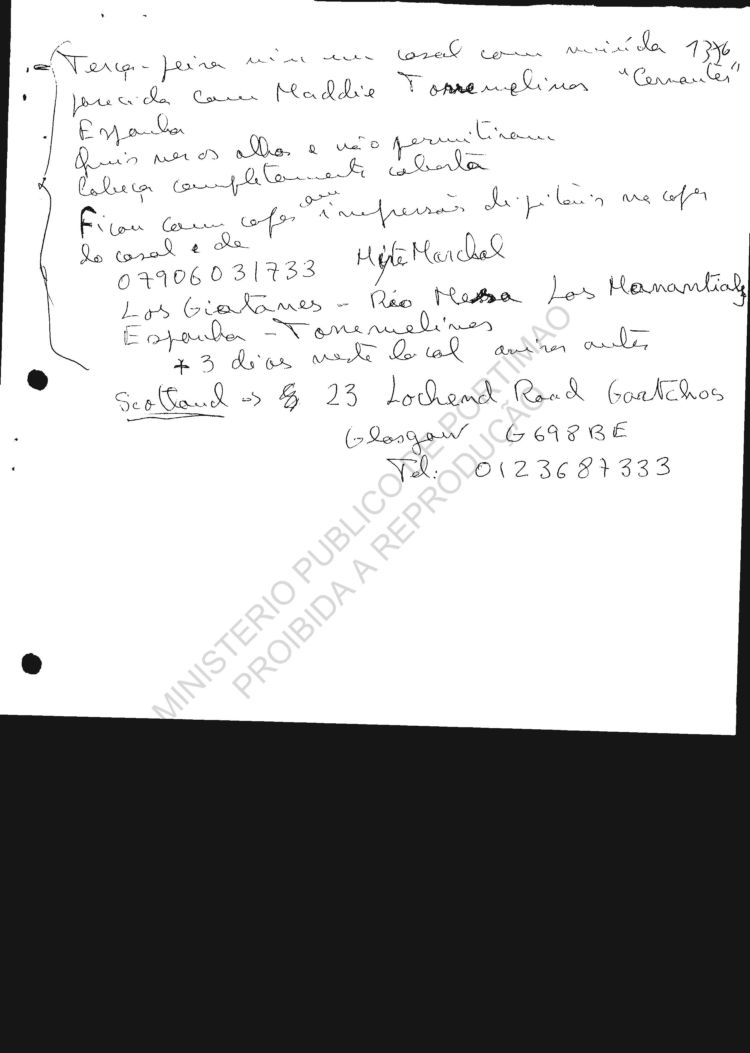 Terça-feira viu um casal com miúda 13/6
parecida com Maddie Torremolinos "Cervantes"
Espanha
Quis ver os olhos e não permitiram
Cabeça completamente coberta
Ficou com copos impressões digitais no copo
do casal e da
07906031733
Los Giotánes - Rio Mesa Los Manantiales
Espanha - Torremelinos
+ 3 dias neste local antes
Scotland -> 23 Lochend Road Gartchos
Glasgow G698BE
Tel: 0123687333
MINISTERIO PUBLICO DE PORTIMAO
PROIBIDA A REPRODUÇÃO